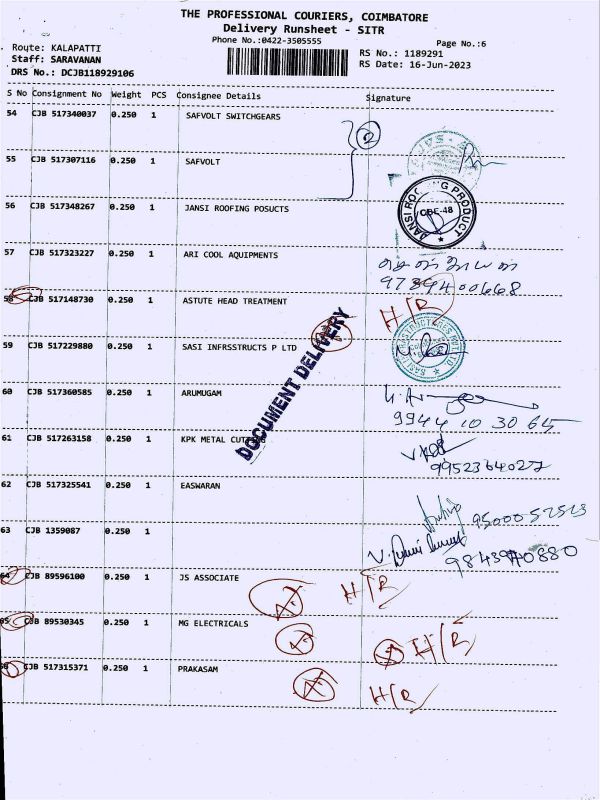 THE PROFESSIONAL COURIERS, COIMBATORE
Delivery Runsheet - SITR
Phone No.:0422-3505555
Page No.:6
Route: KALAPATTI
RS No.: 1189291
Staff: SARAVANAN
RS Date: 16-Jun-2023
DRS No.: DCJB118929106
S No Consignment No Weight PCS Consignee Details Signature
54 CJB 517340037 0.250 1 SAFVOLT SWITCHGEARS
2
55 CJB 517307116 0.250 1 SAFVOLT
56 CJB 517348267 0.250 1 JANSI ROOFING POSUCTS
JANSI ROOFING PRODUCT
CBE-48
57 CJB 517323227 0.250 1 ARI COOL AQUIPMENTS
58 CJB 517148730 0.250 1 ASTUTE HEAD TREATMENT
H/R
59 CJB 517229880 0.250 1 SASI INFRSSTRUCTS P LTD
DOCUMENT DELIVERY
60 CJB 517360585 0.250 1 ARUMUGAM
9944 10 30 65
61 CJB 517263158 0.250 1 KPK METAL CUTTING
9952364027
62 CJB 517325541 0.250 1 EASWARAN
63 CJB 1359087 0.250 1
64 CJB 89596100 0.250 1 JS ASSOCIATE
H/R
65 CJB 89530345 0.250 1 MG ELECTRICALS
H/R
66 CJB 517315371 0.250 1 PRAKASAM
H/R